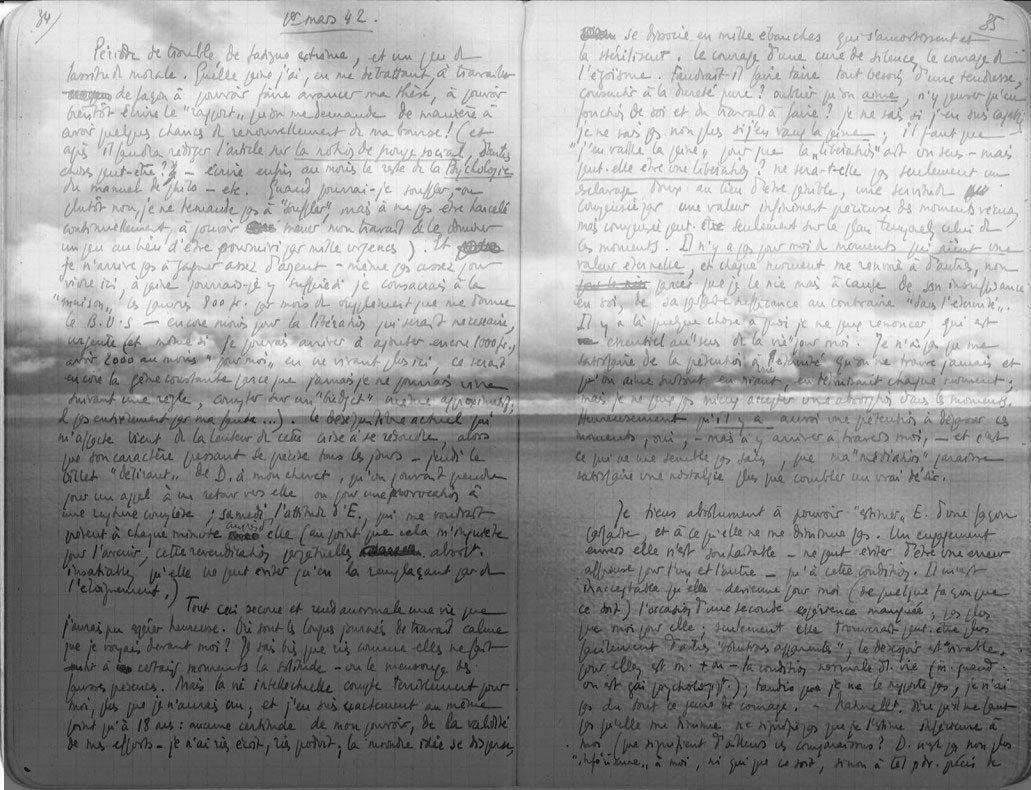 34
1er mars 42.
Période de trouble, de fatigue extrême, et un peu de
lassitude morale. Quelle peine j'ai, en me débattant à travailler
de façon à pouvoir faire avancer ma thèse, à pouvoir
bientôt écrire le "rapport" qu'on me demande de manière à
avoir quelques chances de renouvellement de ma bourse ! (et
après il faudra rédiger l'article sur la notion de groupe social, d'autres
choses peut-être ? – écrire enfin au moins le reste de la Psychologie
du manuel de philo – etc. Quand pourrai-je souffler, – ou
plutôt non, je ne demande pas à "souffler", mais à ne pas être harcelé
continuellement, à pouvoir mener mon travail et le dominer
un peu au lieu d'être poursuivi par mille urgences). Et
je n'arrive pas à gagner assez d'argent – même pas assez pour
vivre ici, à peine pourrais-je y suffire si je consacrais à la
"maison" les pauvres 800 fr. par mois de supplément que me donne
le B.U.S – encore moins pour la libération qui serait nécessaire,
urgente (et même si je pouvais arriver à ajouter encore 1000 fr.,
avoir 2000 au moins "pour moi", en ne vivant plus ici, ce serait
encore la gêne constante parce que jamais je ne pourrais vivre
suivant une règle, compter sur un "budget" même approximatif,
pas entièrement par ma faute ...). Le déséquilibre actuel qui
m'affecte vient de la lenteur de cette crise à se résoudre, alors
que son caractère pressant se précise tous les jours – jeudi le
billet "délirant" de D. à mon chevet, qu'on pouvait prendre
pour un appel à un retour vers elle ou pour une provocation à
une rupture complète ; samedi l'attitude d'E. qui me voudrait
présent à chaque minute auprès d'elle (au point que cela m'inquiète
pour l'avenir, cette revendication perpétuelle, absolt.
insatiable, qu'elle ne peut éviter qu'en la remplaçant par de
l'éloignement.)
Tout ceci secoue et rend anormale une vie que
j'aurais pu espérer heureuse. Où sont les longues journées de travail calme
que je voyais devant moi ? Je sais bien que rien comme elles ne fait
sentir à certains moments la solitude – ou le mensonge des
fausses présences. Mais la vie intellectuelle compte terriblement pour
moi, plus que je n'aurais cru ; et j'en suis exactement au même
point qu'à 18 ans : aucune certitude de mon pouvoir, de la validité
de mes efforts – je n'ai rien écrit, rien produit ; la moindre idée se disperse,
35
se dissocie en mille ébauches qui s'amortissent et
la stérilisent. Le courage d'une cure de silence, le courage de
l'égoïsme. Faudrait-il faire taire tout besoin d'une tendresse,
consentir à la dureté pure ? oublier qu'on aime, n'y penser qu'en
fonction de soi et du travail à faire ? je ne sais si j'en suis capable,
je ne sais pas non plus si j'en vaux la peine ; il faut que
"j'en vaille la peine" pour que la "libération" ait un sens – mais
peut-elle être une libération ? ne sera-t-elle pas seulement un
esclavage doux au lieu d'être pénible, une servitude
compensée par une valeur infiniment précieuse des moments vécus,
mais compensée peut-être seulement sur le plan temporel, celui de
ces moments. Il n'y a pas pour moi de moments qui aient une
valeur éternelle, et chaque moment me renvoie à d'autres, non
parce que je le nie mais à cause de son insuffisance
en soi, de sa signifiance au contraire "dans l'éternité".
Il y a là quelque chose à quoi je ne puis renoncer, qui est
essentiel au sens de la vie pour moi. Je n'ai pas à me
satisfaire de la prétention à l'éternité qu'on ne trouve jamais et
qu'on aime surtout en niant, en détruisant chaque moment ;
mais je ne puis pas mieux accepter une absorption dans les moments.
Heureusement qu'il y a aussi une prétention à dépasser ces
moments, joui, – mais à y arriver à travers moi, – et c'est
ce qui ne me semble pas sain, que ma "médiation" paraisse
satisfaire une nostalgie plus que combler un vrai désir.
Je tiens absolument à pouvoir "estimer" E. d'une façon
parfaite, et à ce qu'elle ne me diminue pas. Un engagement
envers elle n'est souhaitable – ne peut éviter d'être une erreur
affreuse pour l'un et l'autre – qu'à cette condition. Il m'est
inacceptable qu'elle devienne pour moi (de quelque façon que
ce soit) l'occasion d'une seconde expérience manquée, pas plus
que moi pour elle ; seulement elle trouverait peut-être plus
facilement d'autres "solutions apparentes", le désespoir est vivable
pour elle, est m. + ou – la condition normale de vie (m. quand
on est gai psychologiqt.) ; tandis que je ne le supporte pas, je n'ai
pas du tout ce genre de courage. – Naturellt. dire qu'il ne faut
pas qu'elle me diminue ne signifie pas que je l'estime inférieure à
moi (que signifient d'ailleurs ces comparaisons ? D. n'est pas non plus
"inférieure" à moi, ni qui que ce soit, sinon à tel pdv. précis de